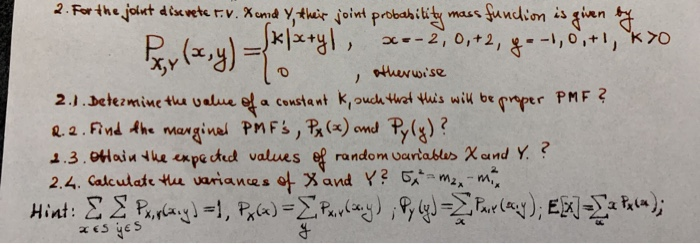 2. For the joint discrete r.v. X and Y, their joint probability mass function is given by
P_{X,Y}(x,y) = { k|x+y| , x = -2, 0, +2, y = -1, 0, +1, K>0
0 , otherwise
2.1. Determine the value of a constant K, such that this will be proper PMF ?
2.2. Find the marginal PMF's, P_X(x) and P_Y(y) ?
2.3. Obtain the expected values of random variables X and Y. ?
2.4. Calculate the variances of X and Y? σ_X^2 = m_{2x} - m_{1x}^2
Hint: Σ_{x∈S} Σ_{y∈S} P_{X,Y}(x,y) = 1, P_X(x) = Σ_y P_{X,Y}(x,y) ; P_Y(y) = Σ_x P_{X,Y}(x,y); E[X] = Σ_x x P_X(x);